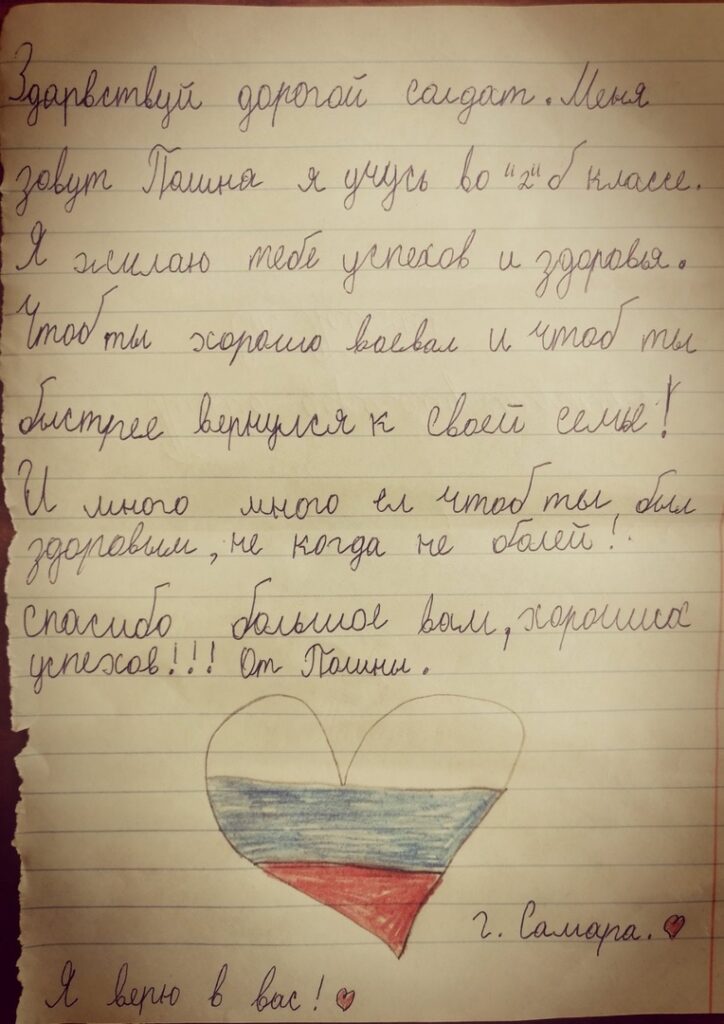 Здарвствуй дорогой солдат. Меня
зовут Полина я учусь во "2" б классе.
Я жилаю тебе успехов и здоровья.
Чтоб ты хорошо воевал и чтоб ты
быстрее вернулся к своей семье!
И много много ел чтоб ты был
здоровым, не когда не болей!
спасибо большое вам, хороших
успехов!!! От Полины.
г. Самара.
Я верю в вас!